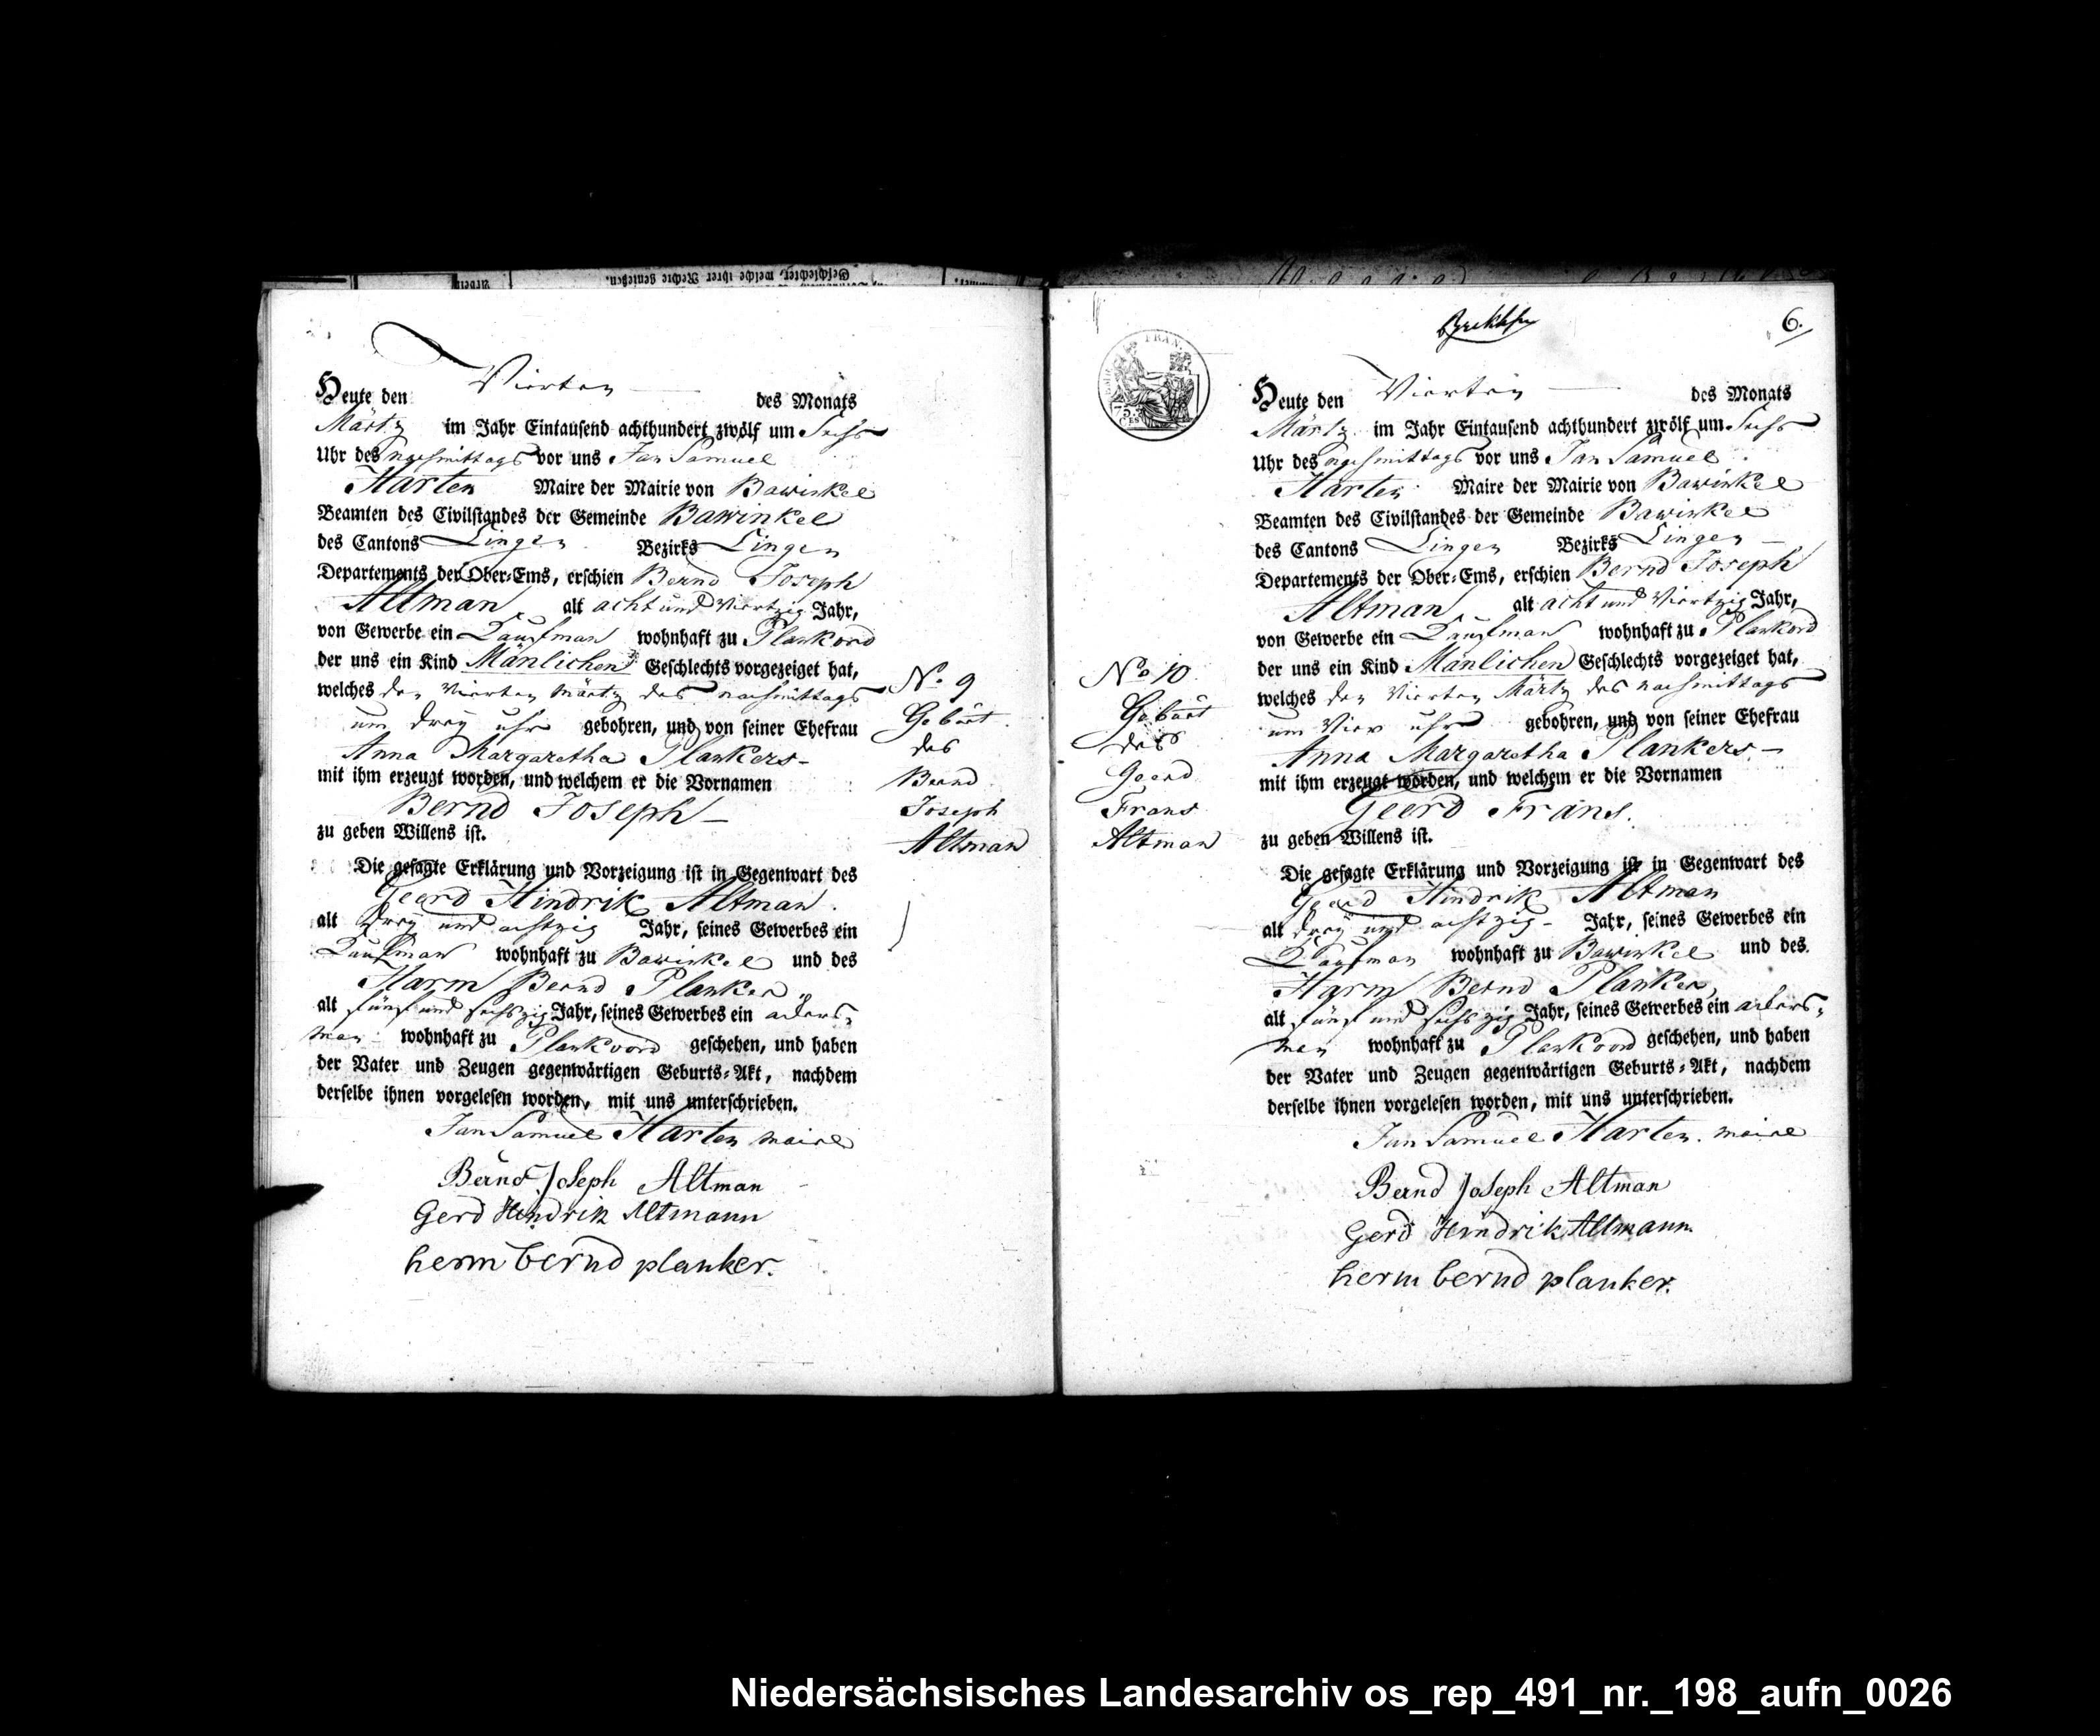 Heute den Vierten des Monats
Märtz im Jahr Eintausend achthundert zwölf um Sechs
Uhr des nachmittags vor uns Jan Samuel
Harten Maire der Mairie von Bawinkel
Beamten des Civilstandes der Gemeinde Bawinkel
des Cantons Lingen Bezirks Lingen
Departements der Ober-Ems, erschien Bernd Joseph
Altman alt acht und Viertzig Jahr,
von Gewerbe ein Kaufman wohnhaft zu Plankord
der uns ein Kind Mänlichen Geschlechts vorgezeiget hat,
welches den Vierten Märtz des nachmittags
um Dreÿ uhr gebohren, und von seiner Ehefrau
Anna Margaretha Plankers
mit ihm erzeugt worden, und welchem er die Vornamen
Bernd Joseph
zu geben Willens ist.
Die gesagte Erklärung und Vorzeigung ist in Gegenwart des
Geerd Hindrik Altman
alt Dreÿ und achtzig Jahr, seines Gewerbes ein
Kaufman wohnhaft zu Bawinkel und des
Harm Bernd Planker
alt fünf und sechszig Jahr, seines Gewerbes ein ackers-
man wohnhaft zu Plankoord geschehen, und haben
der Vater und Zeugen gegenwärtigen Geburts-Akt, nachdem
derselbe ihnen vorgelesen worden, mit uns unterschrieben.
Jan Samuel Harten maire
Bernd Joseph Altman
Gerd Hindrik Altmann
herm bernd planker.
No 9
Gebürt
des
Bernd
Joseph
Altman
6.
FRAN.
75.
No 10
Gebürt
dess
Geerd
Frans
Altman
Heute den Vierten des Monats
Märtz im Jahr Eintausend achthundert zwölf um Sechs
Uhr des nachmittags vor uns Jan Samuel
Harten Maire der Mairie von Bawinkel
Beamten des Civilstandes der Gemeinde Bawinkel
des Cantons Lingen Bezirks Lingen
Departements der Ober-Ems, erschien Bernd Joseph
Altman alt acht und Viertzig Jahr,
von Gewerbe ein Kaufman wohnhaft zu Plankord
der uns ein Kind Mänlichen Geschlechts vorgezeiget hat,
welches den Vierten Märtz des nachmittags
um Vier uhr gebohren, und von seiner Ehefrau
Anna Margaretha Plankers
mit ihm erzeugt worden, und welchem er die Vornamen
Geerd Frans.
zu geben Willens ist.
Die gesagte Erklärung und Vorzeigung ist in Gegenwart des
Geerd Hindrik Altman
alt dreÿ und achtzig Jahr, seines Gewerbes ein
Kaufman wohnhaft zu Bawinkel und des
Harm Bernd Planker
alt fünf und sechszig Jahr, seines Gewerbes ein ackers-
man wohnhaft zu Plankoord geschehen, und haben
der Vater und Zeugen gegenwärtigen Geburts-Akt, nachdem
derselbe ihnen vorgelesen worden, mit uns unterschrieben.
Jan Samuel Harten. maire
Bernd Joseph Altman
Gerd Hindrik Altmann
herm bernd planker.
Niedersächsisches Landesarchiv os_rep_491_nr._198_aufn_0026